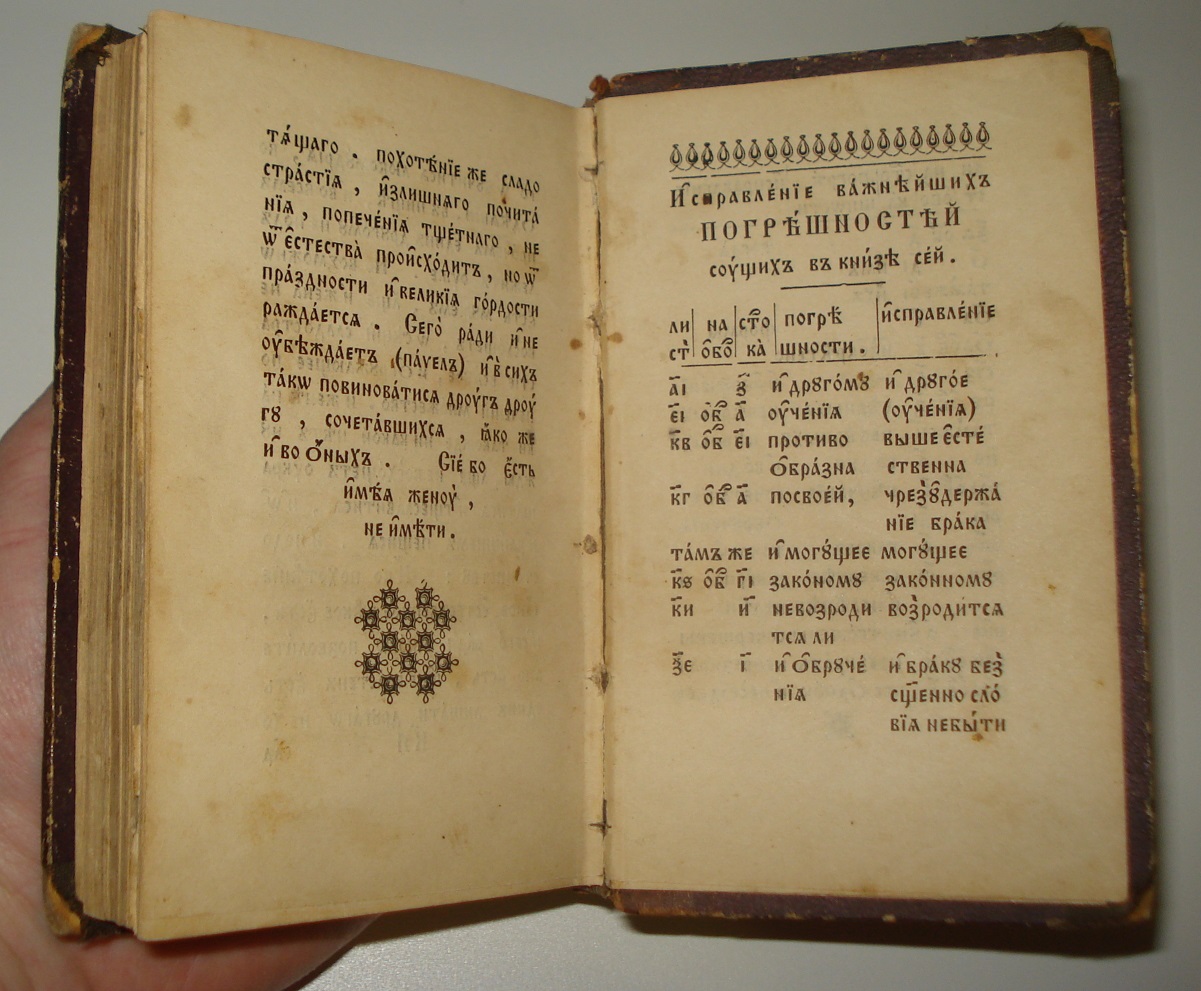 тѧ́щаго . похотѣ́нїе же сладо
стра́стїѧ , и҆зли́шнѧго почита́
нїѧ , попече́нїѧ тще́тнаго , не
ѿ є҆стества̀ происхо́дитъ , но ѿ
пра́здности и҆ вели́кїѧ го́рдости
ражда́етсѧ . Сего̀ ра́ди и҆ не
оу҆вѣжда́етъ (па́уелъ) и҆ в̾ си́хъ
та́кѡ повинова́тисѧ дроу́гъ дроу́
гꙋ , сочета́вшихсѧ , ꙗ҆́ко же
и҆ во ѻ҆́ныхъ . Сїе́ бо є҆́сть
и҆мѣ́ѧ женоу̀ ,
не и҆мѣ́ти .
И҆справле́нїе ва́жнѣйшихъ
ПОГРѢ́ШНОСТѢЙ
соу́щихъ въ кни́зѣ се́й .
ли на стро погрѣ и҆справле́нїе
ст̀ ѻ҆бо ка̀ шности .
а҃і з҃ и҆ дрꙋго́мꙋ и҆ дрꙋго́е
є҃і ѻ҆б а҃ оу҆че́нїѧ (оу҆че́нїѧ)
к҃в ѻ҆б є҃і противо выше є҆сте́
ѻ҆бра́зна ственна
к҃г ѻ҆б а҃ посвое́й, чрез̾ꙋ҆держа́
нїе бра́ка
та́мъ же и҆ могꙋ́щее могꙋ́щее
к҃ѕ ѻ҆б г҃і зако́номꙋ зако́нномꙋ
к҃и и҃ невозроди воз̾роди́тсѧ
тсѧ ли
ѯ҃е і҃ и҆ ѻ҆брꙋче́ и҆ бра́кꙋ без̾
нїѧ сщ҃енно сло́
вїѧ небы́ти